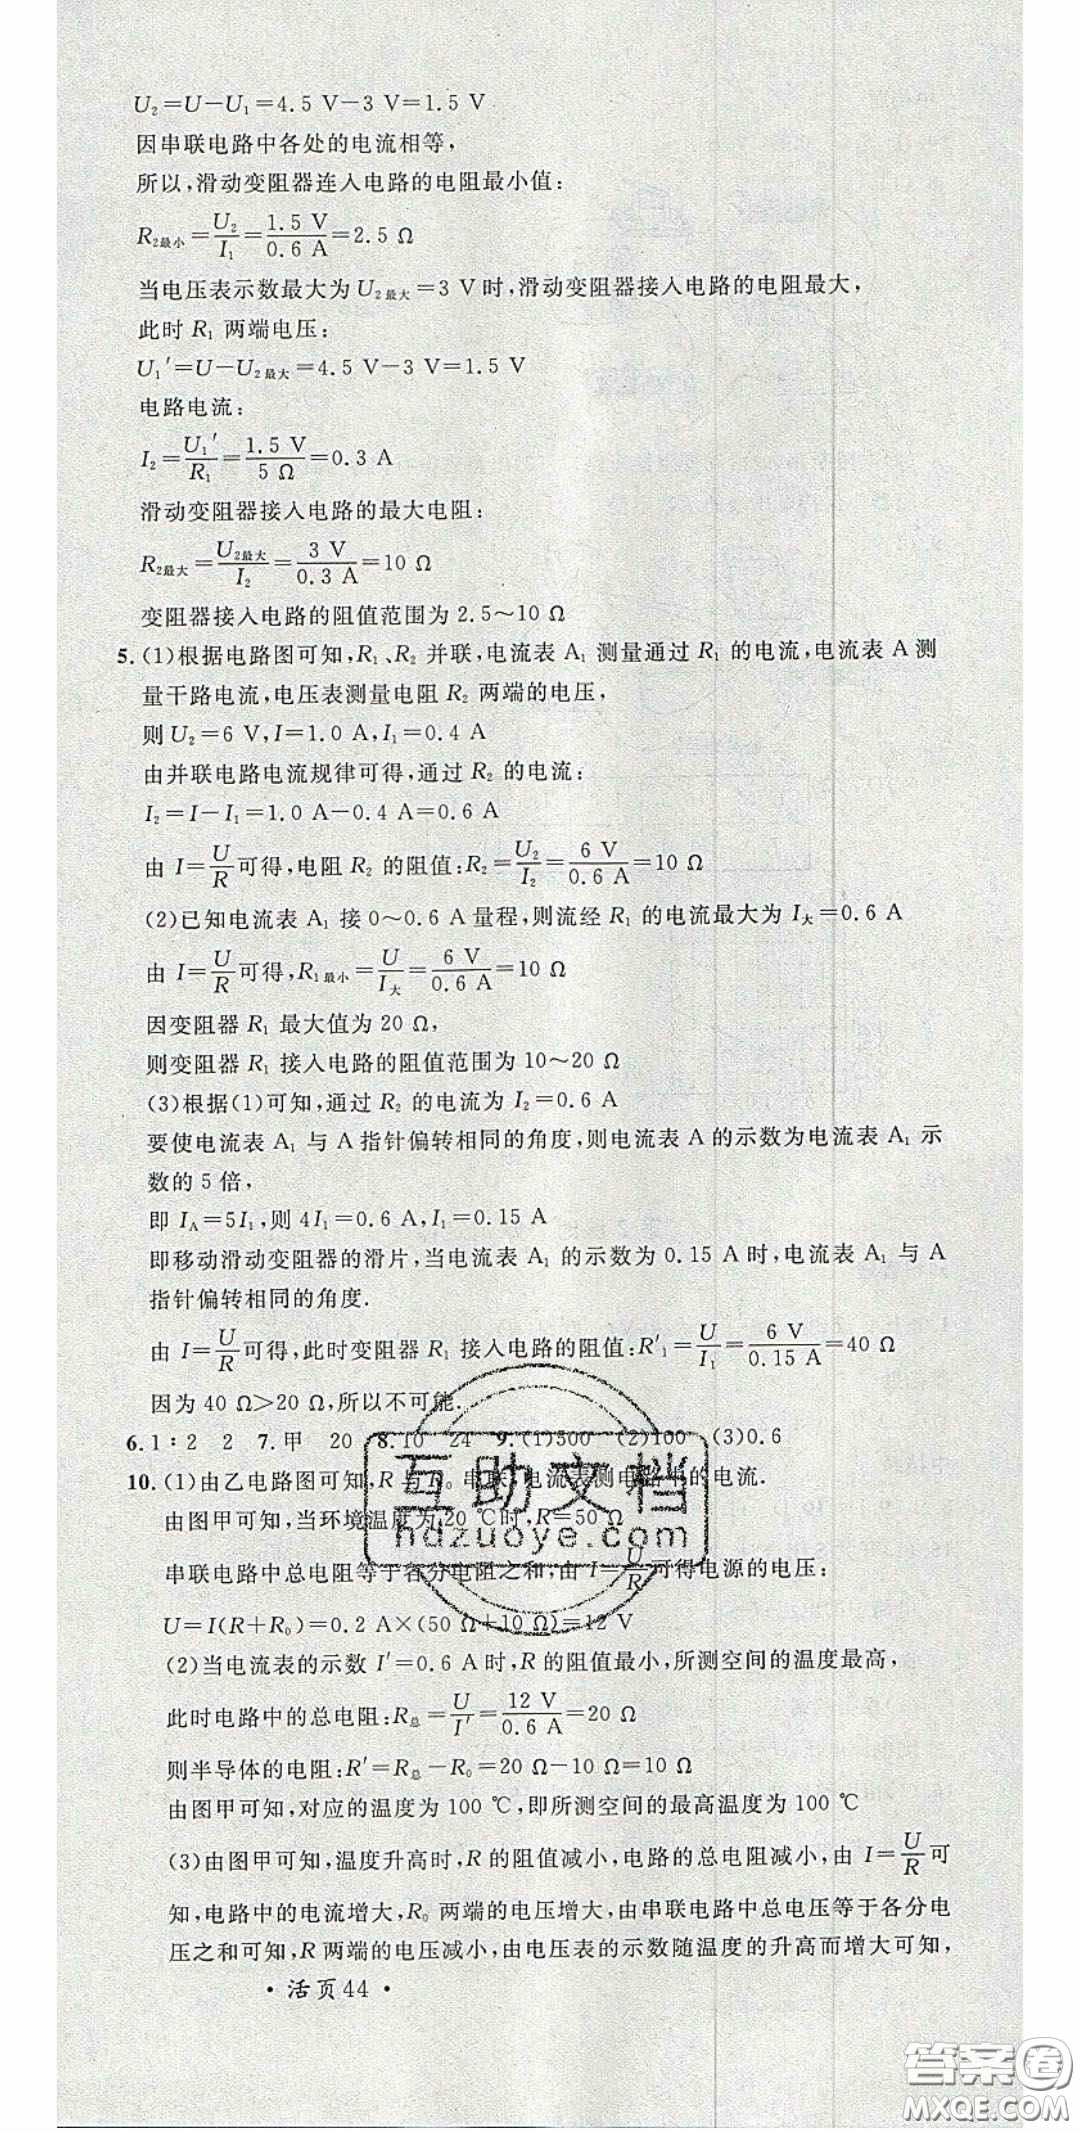 U₂=U−U₁=4.5 V−3 V=1.5 V
因串联电路中各处的电流相等，
所以，滑动变阻器连入电路的电阻最小值：
R₂最小=U₂/I₁=1.5 V/0.6 A=2.5 Ω
当电压表示数最大为 U₂最大=3 V时，滑动变阻器接入电路的电阻最大，
此时 R₁ 两端电压：
U₁′=U−U₂最大=4.5 V−3 V=1.5 V
电路电流：
I₂=U₁′/R₁=1.5 V/5 Ω=0.3 A
滑动变阻器接入电路的最大电阻：
R₂最大=U₂最大/I₂=3 V/0.3 A=10 Ω
变阻器接入电路的阻值范围为 2.5～10 Ω
5. (1)根据电路图可知，R₁、R₂ 并联，电流表 A₁ 测量通过 R₁ 的电流，电流表 A 测
量干路电流，电压表测量电阻 R₂ 两端的电压，
则 U₂=6 V，I=1.0 A，I₁=0.4 A
由并联电路电流规律可得，通过 R₂ 的电流：
I₂=I−I₁=1.0 A−0.4 A=0.6 A
由 I=U/R可得，电阻 R₂ 的阻值：R₂=U₂/I₂=6 V/0.6 A=10 Ω
(2)已知电流表 A₁ 接 0～0.6 A 量程，则流经 R₁ 的电流最大为 I大=0.6 A
由 I=U/R可得，R₁最小=U/I大=6 V/0.6 A=10 Ω
因变阻器 R₁ 最大值为 20 Ω，
则变阻器 R₁ 接入电路的阻值范围为 10～20 Ω
(3)根据(1)可知，通过 R₂ 的电流为 I₂=0.6 A
要使电流表 A₁ 与 A 指针偏转相同的角度，则电流表 A 的示数为电流表 A₁ 示
数的 5 倍，
即 IA=5I₁，则 4I₁=0.6 A，I₁=0.15 A
即移动滑动变阻器的滑片，当电流表 A₁ 的示数为 0.15 A 时，电流表 A₁ 与 A
指针偏转相同的角度.
由 I=U/R可得，此时变阻器 R₁ 接入电路的阻值：R′₁=U/I₁=6 V/0.15 A=40 Ω
因为 40 Ω＞20 Ω，所以不可能.
6. 1∶2 2 7. 甲 20 8. 10 24 9. (1)500 (2)100 (3)0.6
10. (1)由乙电路图可知，R 与 R₀ 串联，电流表测电路中的电流.
由图甲可知，当环境温度为 20 ℃时，R=50 Ω
串联电路中总电阻等于各分电阻之和，由 I=U/R可得电源的电压：
U=I(R+R₀)=0.2 A×(50 Ω+10 Ω)=12 V
(2)当电流表的示数 I′=0.6 A 时，R 的阻值最小，所测空间的温度最高，
此时电路中的总电阻：R总=U/I′=12 V/0.6 A=20 Ω
则半导体的电阻：R′=R总−R₀=20 Ω−10 Ω=10 Ω
由图甲可知，对应的温度为 100 ℃，即所测空间的最高温度为 100 ℃
(3)由图甲可知，温度升高时，R 的阻值减小，电路的总电阻减小，由 I=U/R可
知，电路中的电流增大，R₀ 两端的电压增大，由串联电路中总电压等于各分电
压之和可知，R 两端的电压减小，由电压表的示数随温度的升高而增大可知，
·活页44·
互助文档
hdzuoye.com
答案圈
MXQE.COM